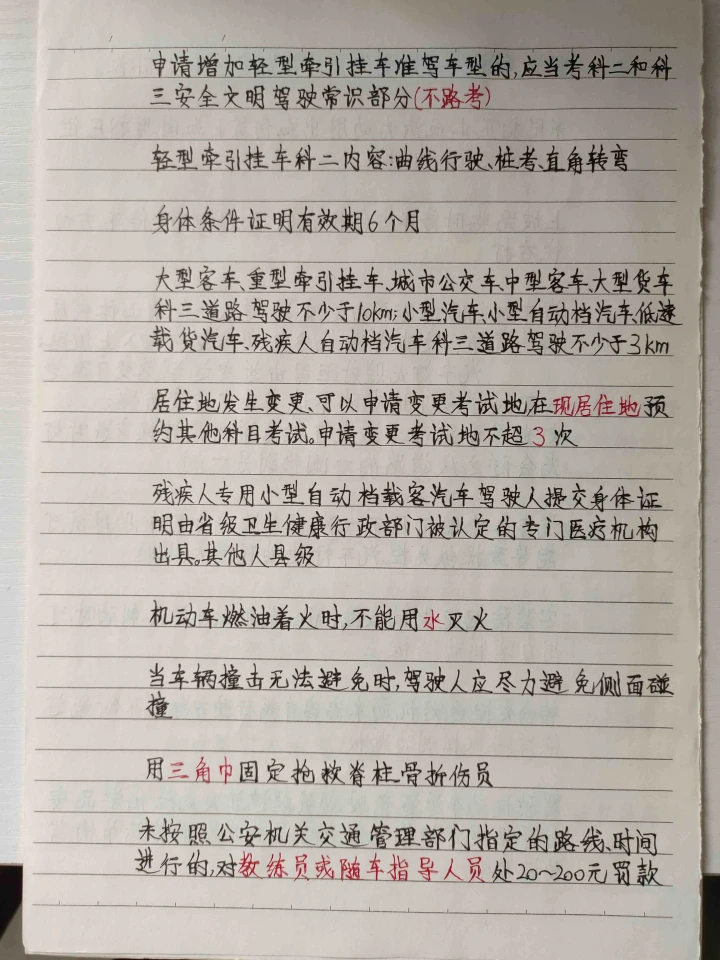 申请增加轻型牵引挂车准驾车型的,应当考科二和科
三安全文明驾驶常识部分(不路考)
轻型牵引挂车科二内容:曲线行驶、桩考、直角转弯
身体条件证明有效期6个月
大型客车、重型牵引挂车、城市公交车、中型客车、大型货车
科三道路驾驶不少于10km;小型汽车、小型自动档汽车、低速
载货汽车、残疾人自动档汽车科三道路驾驶不少于3km
居住地发生变更、可以申请变更考试地,在现居住地预
约其他科目考试。申请变更考试地不超3次
残疾人专用小型自动档载客汽车驾驶人提交身体证
明由省级卫生健康行政部门被认定的专门医疗机构
出具。其他人县级
机动车燃油着火时,不能用水灭火
当车辆撞击无法避免时,驾驶人应尽力避免侧面碰
撞
用三角巾固定抢救脊柱骨折伤员
未按照公安机关交通管理部门指定的路线、时间
进行的,对教练员或随车指导人员处20~200元罚款